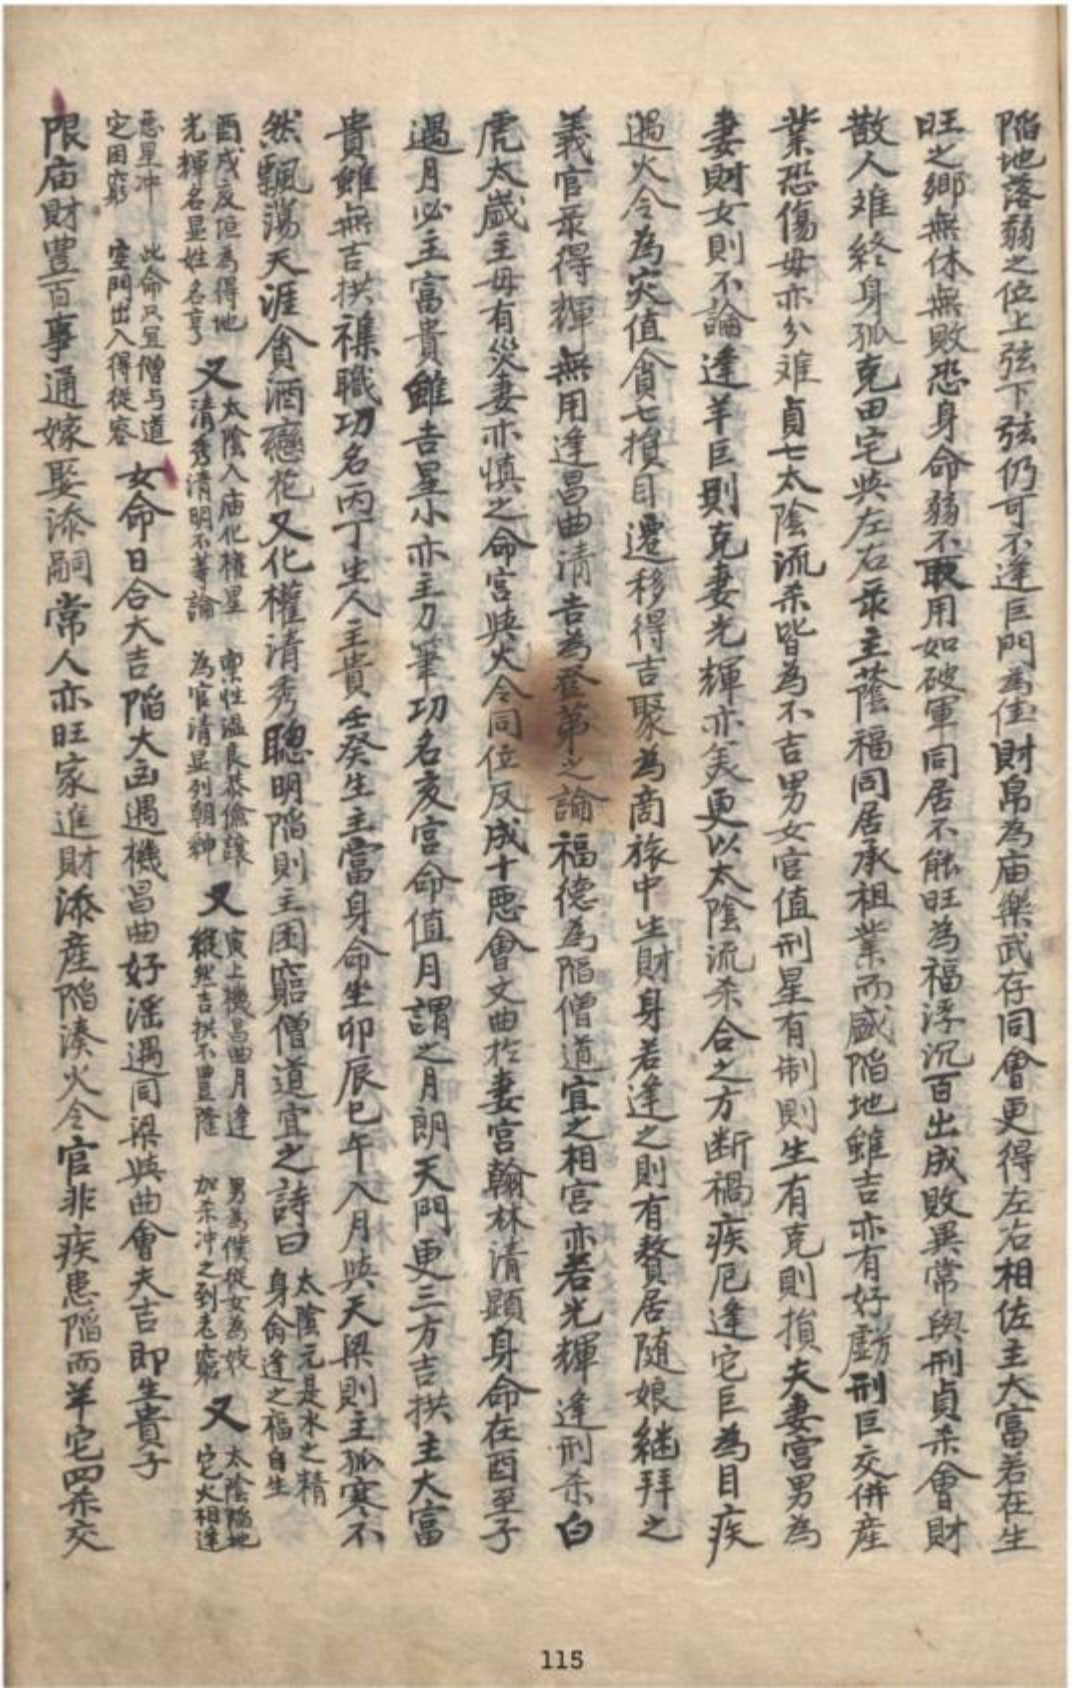 陷地落弱之位上弦下弦仍可不逢巨門為佳財帛為庙樂武存同會更得左右相佐主大富若在生
旺之鄉無休無敗恐身命弱不敢用如破軍同居不能旺為福浮沉百出成敗異常與刑貞杀會財
散人难終身孤克田宅與左右彔主蔭福同居承祖業而盛陷地雖吉亦有好戲刑巨交併産
業恐傷毋亦分难貞七太陰流杀皆為不吉男女宮值刑星有制則生有克則損夫妻宮男為
妻財女則不論逢羊巨則克妻光輝亦美更以太陰流杀合之方断禍疾厄逢它巨為目疾
遇火令為灾值貪七損目遷移得吉聚為商旅中生財身若逢之則有贅居随娘継拜之
義官彔得輝無用逢昌曲清吉為登第之論福德為陷僧道宜之相宮亦若光輝逢刑杀白
虎太歲主毋有災妻亦慎之命宮與火令同位反成十惡會文曲於妻宮翰林清顕身命在酉至子
遇月必主富貴雖吉星小亦主刀筆功名亥宮命值月謂之月朗天門更三方吉拱主大富
貴雖無吉拱襍職功名丙丁生人主貴壬癸生主富身命坐卯辰巳午入月與天梁則主孤寒不
然飄蕩天涯貪酒戀花又化權清秀聰明陷則主困窮僧道宜之詩曰
太陰元是水之精
身命逢之福自生
酉戌亥垣為得地
光輝名显姓名亨
又
太陰入庙化權星
清秀清明不等論
禀性温良恭儉讓
為官清显列朝紳
又
寅上機昌曲月逢
縱然吉拱不豊隆
男為僕從女為妓
加杀冲之到老窮
又
太陰陷地
它火相逢
惡星冲
定困窮
此命只宜僧与道
空門出入得從容
女命日合大吉陷大凶遇機昌曲好滛遇同梁與曲會夫吉即生貴子
限庙財豊百事通嫁娶添嗣常人亦旺家進財添産陷湊火令官非疾患陷而羊它四杀交
115